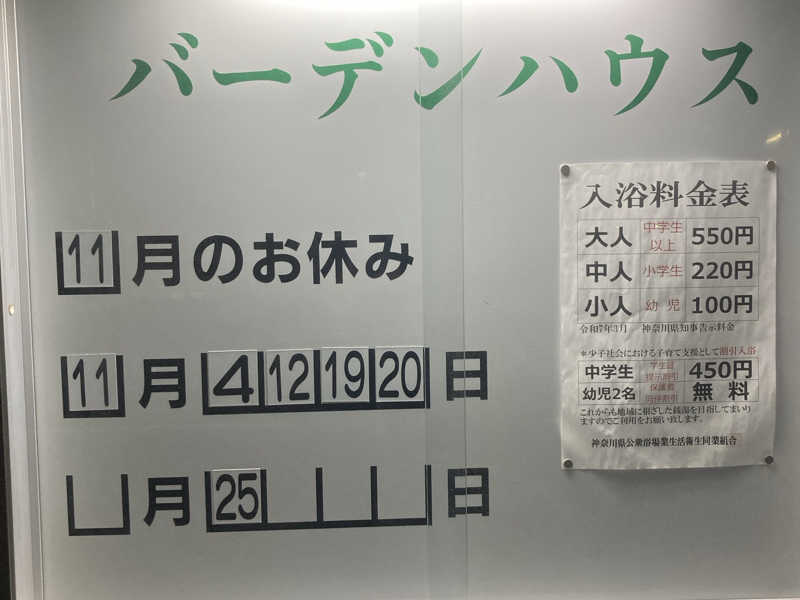 バーデンハウス
11月のお休み
11月 4 12 19 20日
月 25 日
入浴料金表
大人 中学生以上 550円
中人 小学生 220円
小人 幼児 100円
令和7年3月 神奈川県知事告示料金
*少子社会における子育て支援として割引入浴
中学生 学生証提示割引 450円
幼児2名 保護者同伴割引 無料
これからも地域に根ざした銭湯を目指してまい
りますのでご利用をお願い致します。
神奈川県公衆浴場業生活衛生同業組合